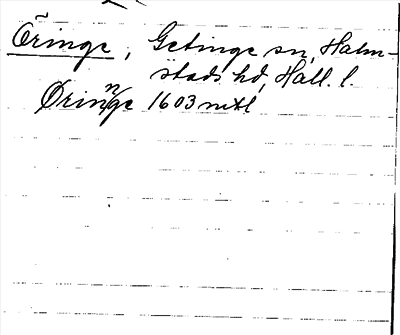 Öringe, Getinge sn, Halm-
stads hd, Hall. l.
Øringe 1603 mtl